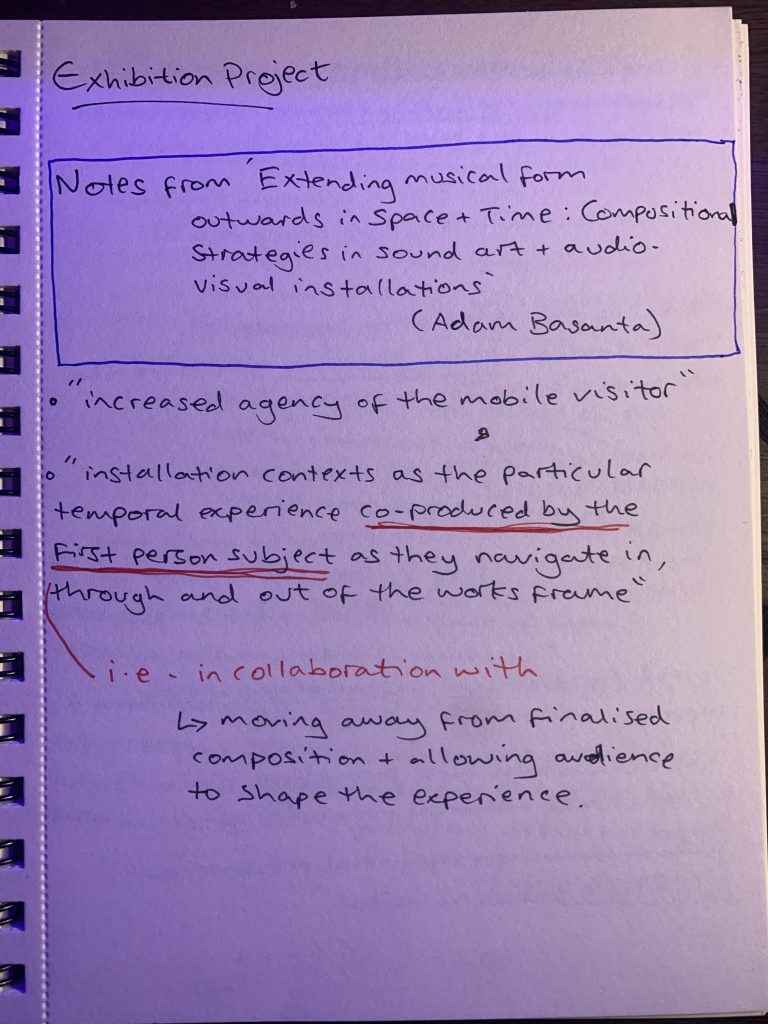 Exhibition Project
Notes from 'Extending musical form
outwards in Space + Time : Compositional
Strategies in sound art + audio-
visual installations'
(Adam Basanta)
• "increased agency of the mobile visitor"
• "installation contexts as the particular
temporal experience co-produced by the
first person subject as they navigate in,
through and out of the works frame"
i.e - in collaboration with
↳ moving away from finalised
composition + allowing audience
to shape the experience.